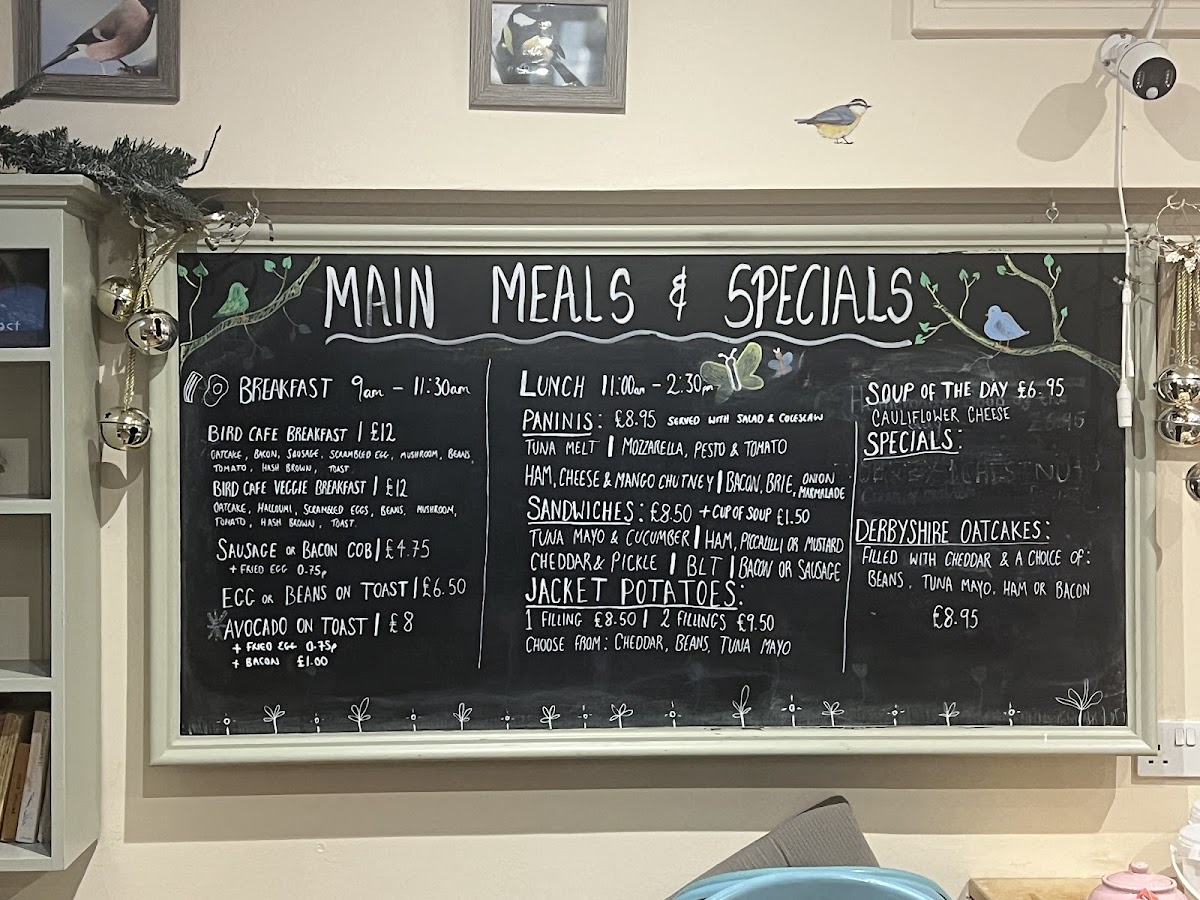 MAIN MEALS & SPECIALS
BREAKFAST 9am - 11:30am
BIRD CAFE BREAKFAST | £12
OATCAKE, BACON, SAUSAGE, SCRAMBLED EGG, MUSHROOM, BEANS,
TOMATO, HASH BROWN, TOAST
BIRD CAFE VEGGIE BREAKFAST | £12
OATCAKE, HALLOUMI, SCRAMBLED EGGS, BEANS, MUSHROOM,
TOMATO, HASH BROWN, TOAST.
SAUSAGE OR BACON COB | £4.75
+ FRIED EGG 0.75p
EGG OR BEANS ON TOAST | £6.50
AVOCADO ON TOAST | £8
+ FRIED EGG 0.75p
+ BACON £1.00
LUNCH 11:00am - 2:30pm
PANINIS: £8.95 SERVED WITH SALAD & COLESLAW
TUNA MELT | MOZZARELLA, PESTO & TOMATO
HAM, CHEESE & MANGO CHUTNEY | BACON, BRIE, ONION MARMALADE
SANDWICHES: £8.50 + CUP OF SOUP £1.50
TUNA MAYO & CUCUMBER | HAM, PICCALILLI OR MUSTARD
CHEDDAR & PICKLE | BLT | BACON OR SAUSAGE
JACKET POTATOES:
1 FILLING £8.50 | 2 FILLINGS £9.50
CHOOSE FROM: CHEDDAR, BEANS, TUNA MAYO
SOUP OF THE DAY £6.95
CAULIFLOWER CHEESE
SPECIALS:
DERBYSHIRE OATCAKES:
FILLED WITH CHEDDAR & A CHOICE OF:
BEANS, TUNA MAYO, HAM OR BACON
£8.95